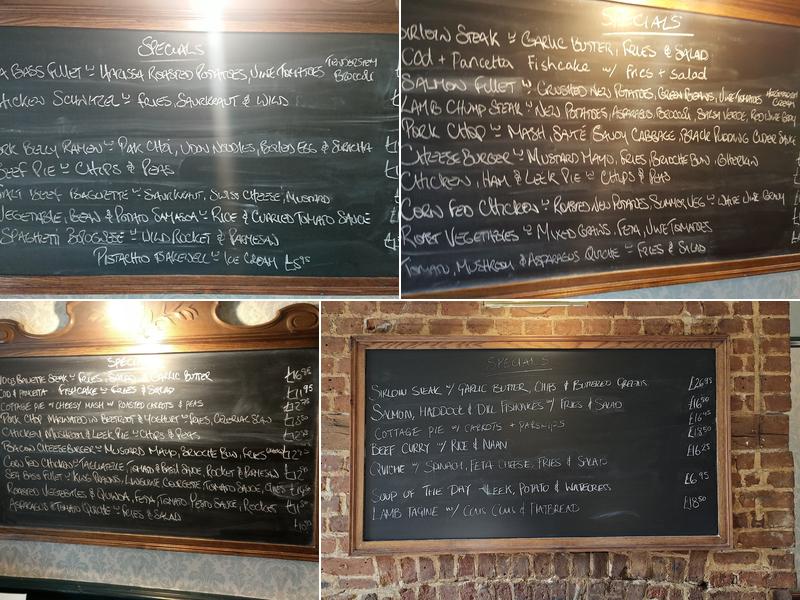 SPECIALS
A BASS FILLET W HARISSA ROASTED POTATOES, VINE TOMATOES TENDERSTEM BROCCOLI
HICKEN SCHNITZEL W FRIES, SAUERKRAUT & WILD
ORK BELLY RAMEN W PAK CHOI, UDON NOODLES, BOILED EGG & SRIRACHA
BEEF PIE W CHIPS & PEAS
ALT BEEF BAGUETTE W SAUERKRAUT, SWISS CHEESE, MUSTARD
VEGETABLE, BEAN & POTATO SAMOSA W RICE & CURRIED TOMATO SAUCE
SPAGHETTI BOLOGNESE W WILD ROCKET & PARMESAN
PISTACHIO BAKEWELL W ICE CREAM £5.95
SPECIALS
SIRLOIN STEAK W GARLIC BUTTER, FRIES & SALAD
Cod + Pancetta Fishcake w/ fries + salad
SALMON FILLET W CRUSHED NEW POTATOES, GREEN BEANS, VINE TOMATOES CREAM
LAMB CHUMP STEAK W NEW POTATOES, ASPARAGUS, BROCCOLI, SALSA VERDE, RED WINE GRAVY
PORK CHOP W MASH, SAUTÉ SAVOY CABBAGE, BLACK PUDDING CIDER SAUCE
CHEESEBURGER W MUSTARD MAYO, FRIES, BRIOCHE BUN, GHERKIN
CHICKEN, HAM & LEEK PIE W CHIPS & PEAS
CORN FED CHICKEN W ROASTED NEW POTATOES SUMMER VEG W WHITE WINE GRAVY
ROAST VEGETABLES W MIXED GRAINS, FETA, VINE TOMATOES
TOMATO, MUSHROOM & ASPARAGUS QUICHE W FRIES & SALAD
SPECIALS
BAVETTE STEAK W FRIES, SALAD & GARLIC BUTTER £16.95
COD & PANCETTA FISHCAKE W FRIES & SALAD £11.95
COTTAGE PIE W CHEESY MASH W ROASTED CARROTS & PEAS
PORK CHOP MARINATED IN BEETROOT & YOGHURT W FRIES, CELERIAC SLAW
CHICKEN MUSHROOM & LEEK PIE W CHIPS & PEAS
BACON CHEESEBURGER W MUSTARD MAYO, BRIOCHE BUN, FRIES
CORN FED CHICKEN W TAGLIATELLE TOMATO & BASIL SAUCE, ROCKET & PARMESAN
SEA BASS FILLET W KING PRAWNS, LINGUINE COURGETTE TOMATO SAUCE,
ROASTED VEGETABLES & QUINOA, FETA, TOMATO PESTO SAUCE, ROCKET
ASPARAGUS & TOMATO QUICHE W FRIES & SALAD
SPECIALS
SIRLOIN STEAK W/ GARLIC BUTTER, CHIPS & BUTTERED GREENS £26.95
SALMON, HADDOCK & DILL FISHCAKES W/ FRIES & SALAD £16.50
COTTAGE PIE W/ CARROTS + PARSNIPS £16.95
BEEF CURRY W/ RICE & NAAN £18.50
QUICHE W/ SPINACH, FETA CHEESE, FRIES & SALAD £16.25
SOUP OF THE DAY - LEEK, POTATO & WATERCRESS £6.95
LAMB TAGINE W/ COUS COUS & FLATBREAD £18.50